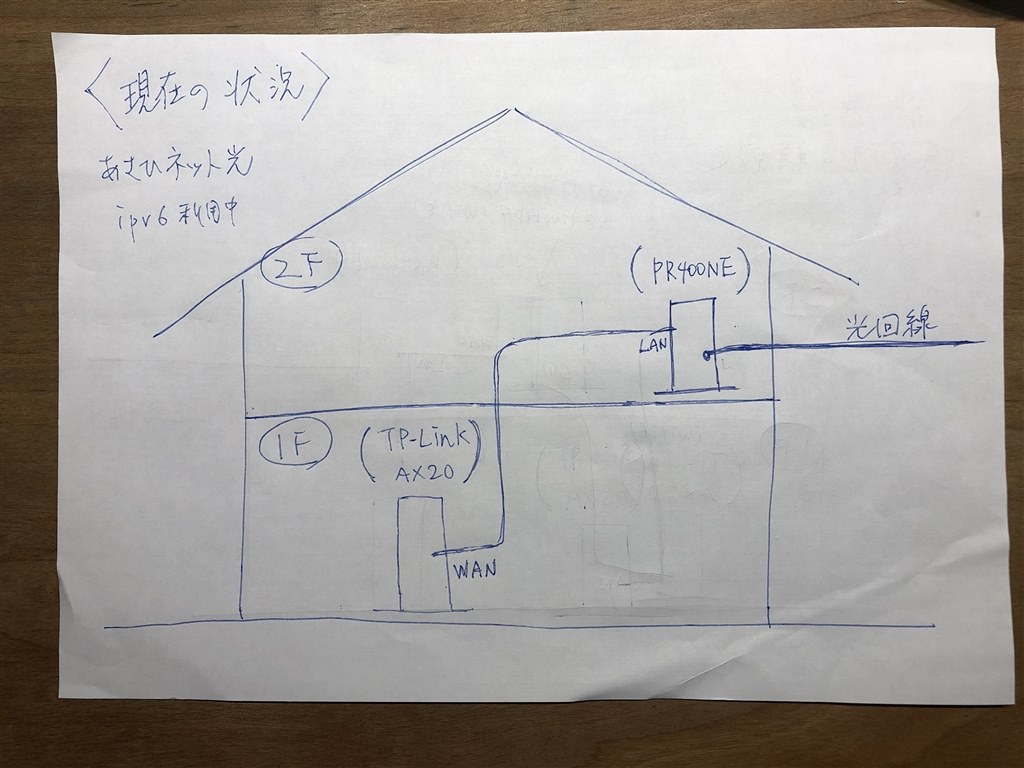 〈現在の状況〉
あさひネット光
ipv6利用中
2F
(PR400NE)
LAN
光回線
1F
(TP-Link
AX20)
WAN